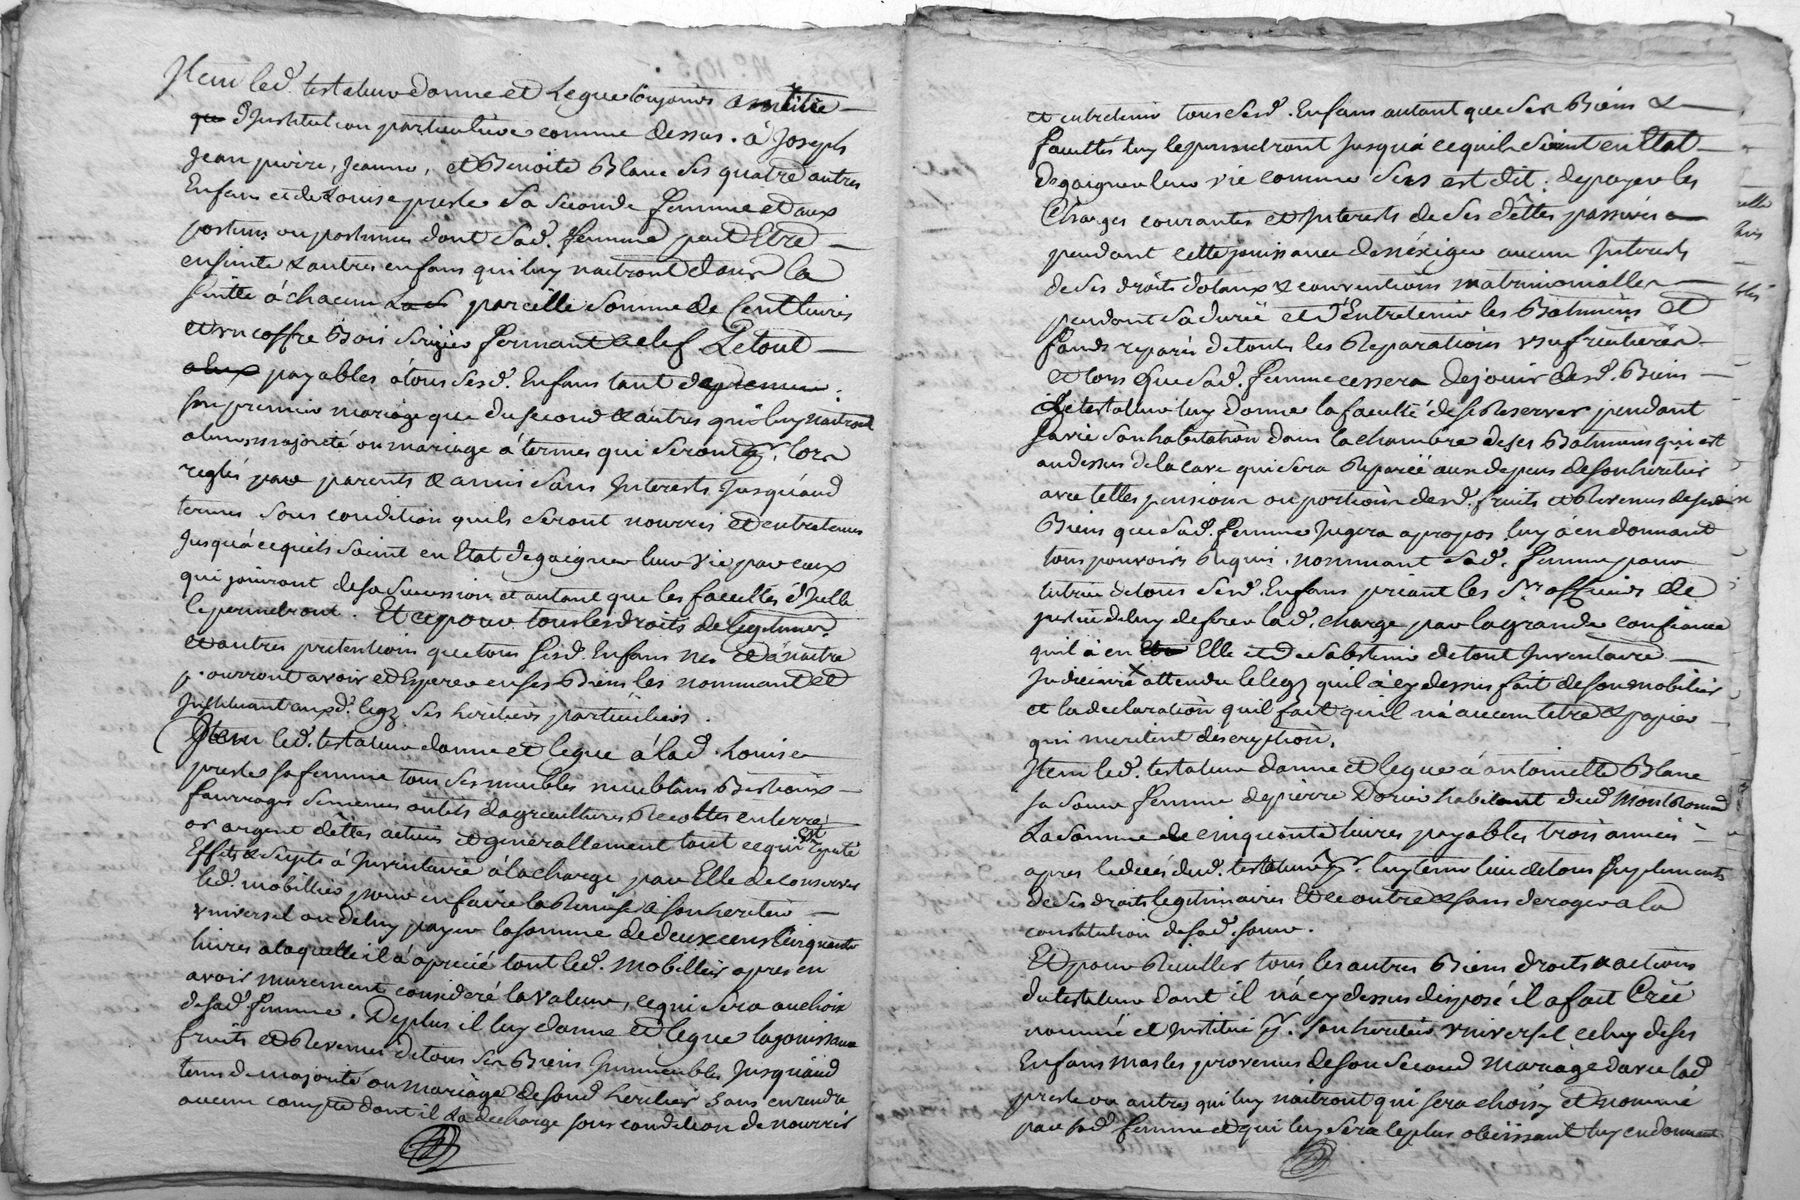 Item led. testateur donne et Legue toujours a mettre
que d'Institution particuliere comme dessus. à Joseph
Jean pierre, Jeanne, et Benoite Blanc ses quatre autres
Enfans et de Louise presle Sa seconde femme et aux
postume ou postumes dont Sad. femme peut Etre
enseinte & autres enfans qui luy naitront dans la
suitte à chacun pareille Somme de Cent livres
et un coffre Bois Serizier fermant a clef Le tout
payables à tous sesd. Enfans tant de
son premier mariage que du second & autres qui luy naitront
a leur majorité ou mariage à termes qui seront lors
reglés par parents & amis sans Interests Jusquaud
termes sous condition quils seront nourris et entretenus
Jusqua cequils soient en Etat de gaigner leur vie par ceux
qui jouiront de sa Sucession et autant que les facultés d'Icelle
le permetront. Et ce pour tous les droits de legitimes
et autres pretentions que tous sesd. Enfans nes et à naitre
pourront avoir et Esperer en ses Biens les nommant et
Instituant auxd. legz ses heritiers particuliers.
Item led. testateur donne et legue à lad. Louise
presle sa femme tous ses meubles meublans Bestiaux
fourrages Semences outils d'agricultures Recoltes en terre
or argent dettes actives et generallement tout ce qui est reputé
Effets & sujets à Inventaire à la charge par Elle de conserver
led. mobillier pour en faire la Remise à son heritier
universel ou de luy payer la somme de deux cens Cinquante
livres a laquelle il à aprecié tout led. Mobillier apres en
avoir murement consideré la valeur, ce qui sera au choix
de sad. femme. De plus il luy donne et legue la jouissance
fruits et Revenus de tous ses Biens Immeubles Jusquaud
tems de majorité ou mariage de sond. heritier sans en rendre
aucun compte dont il la decharge sous condition de nourrir
et entretenir tous sesd. Enfans autant que ses Biens &
facultés luy le permetront Jusqu'a cequils soient en Etat
de gaigner leur vie comme sus est dit; de payer les
Charges courantes et Interests de ses dettes passives
pendant cette jouissance de n'exiger aucun Interests
de ses droits dotaux & conventions matrimonialles
pendant sa durée et d'Entretenir les Batimens et
fonds reparés de toutes les Reparations usufruitieres
et lors Que sad. femme cessera de jouir desd. Biens
Le testateur luy donne la faculté de se Reserver pendant
sa vie son habitation dans la chambre de ses Batimens qui est
au dessus de la cave qui sera Reparée aux depens de son heritier
avec telles pensions ou portions desd. fruits et Revenus de sesd
Biens que sad. femme Jugera apropos luy en donnant
tous pouvoirs Requis. nommant sad. femme pour
tutrice de tous sesd. Enfans priant les Srs officiers de
justice de luy deferer lad. charge par la grande confiance
qu'il à en Elle et de s'abstenir de tout Inventaire
Judiciaire attendu le legz qu'il à cy dessus fait de son mobilier
et la declaration qu'il fait qu'il n'à aucun titre & papier
qui meritent description.
Item led. testateur donne et legue à antoinette Blanc
sa soeur femme de pierre Dorier habitant dud Montromand
La somme de cinquante livres payables trois années
apres le decés dud. testateur luy tenir lieu de tous suplements
de ses droits legitimaires et ce outre & sans deroger a la
constitution de sad. soeur.
Et pour Recuillir tous les autres Biens droits & actions
du testateur dont il n'à cy dessus disposé il a fait Créé
nommé et Institué son heritier universel celuy de ses
Enfans masles provenus de son Second Mariage d'avec lad
presle ou autres qui luy naitront qui sera choisy et nommé
par sad. femme et qui luy sera le plus obeissant luy en donnant